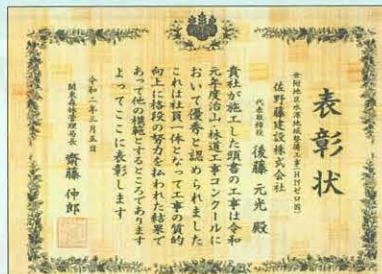 表彰状
世附地区水源地域整備工事(HHゼロ国)
佐野藤建設株式会社
代表取締役 後藤 元光 殿
貴社が施工した頭書の工事は令和
元年度治山・林道工事コンクールに
おいて優秀と認められました
これは社員一体となって工事の質的
向上に格段の努力を払われた結果で
あって他の模範とするところであります
よってここに表彰します
令和二年三月五日
関東森林管理局長 齋藤 伸郎